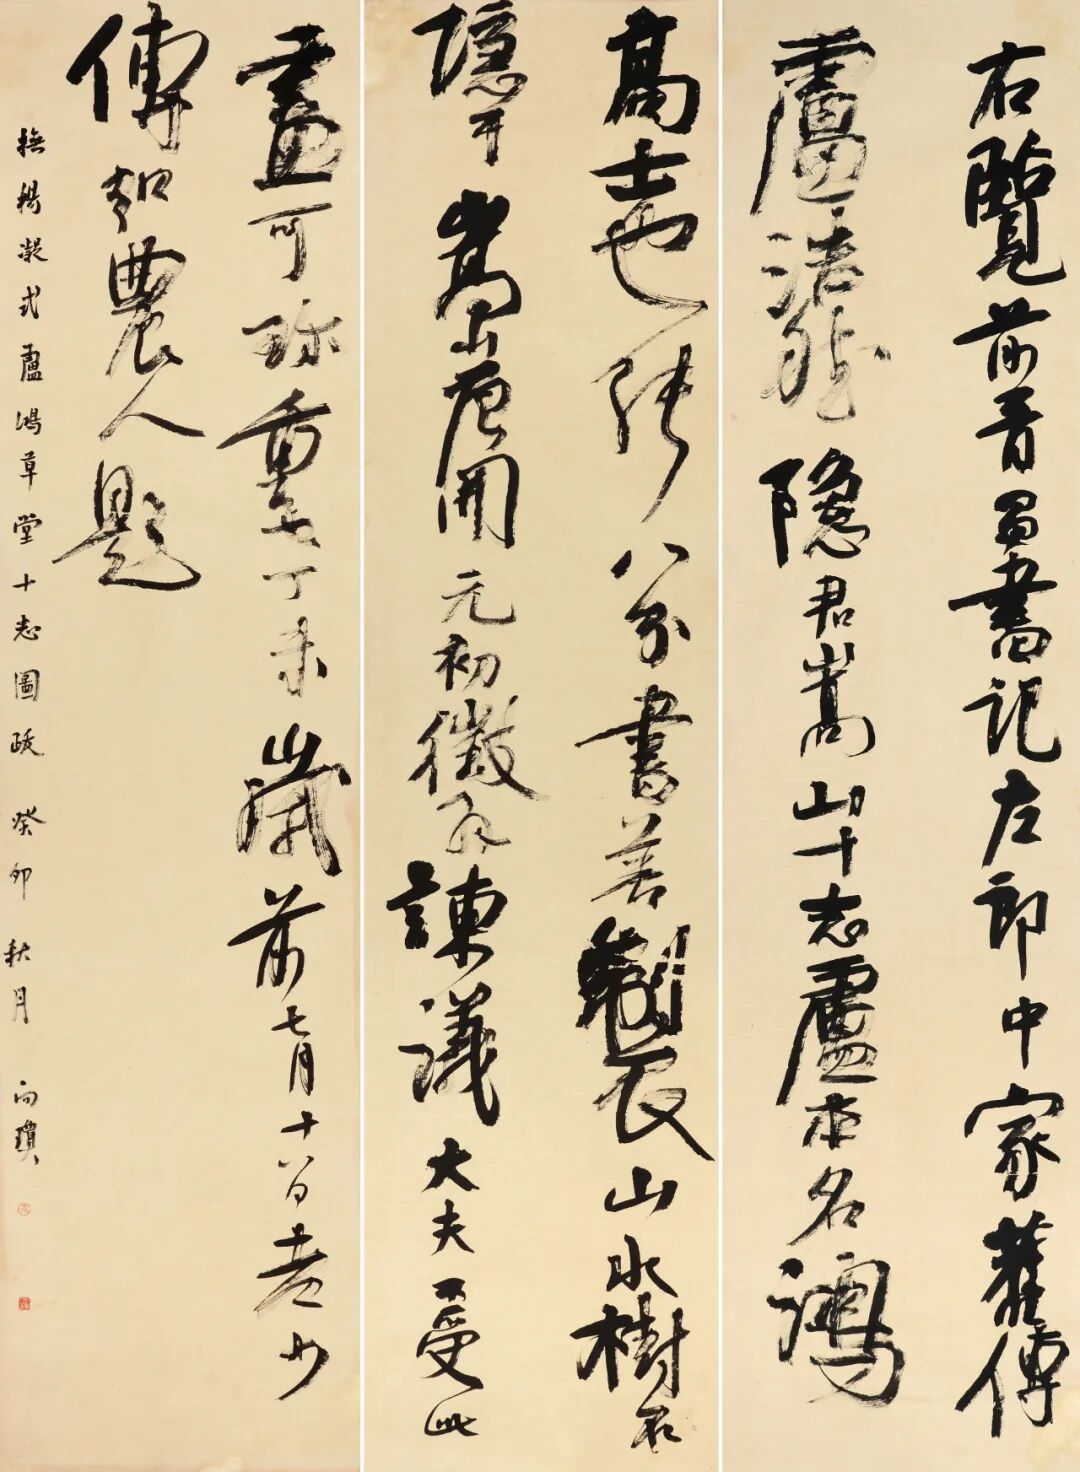 右覽前晋昌書記左郎中家舊傳
盧浩然隱君嵩山十志盧本名鴻
高士也能八分書善製山水樹石
隱于嵩山唐開元初徵爲諫議大夫不受此
畫可珍重也丁未歲前七月十八日老少
傅題知農人題
撫楊凝式盧鴻草堂十志圖跋 癸卯 秋月 向